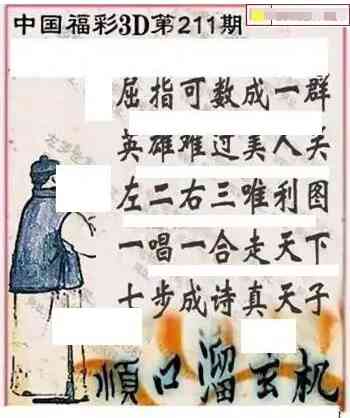 中国福彩3D第211期
屈指可数成一群
英雄难过美人关
左二右三唯利图
一唱一合走天下
十步成诗真天子
順口溜玄机